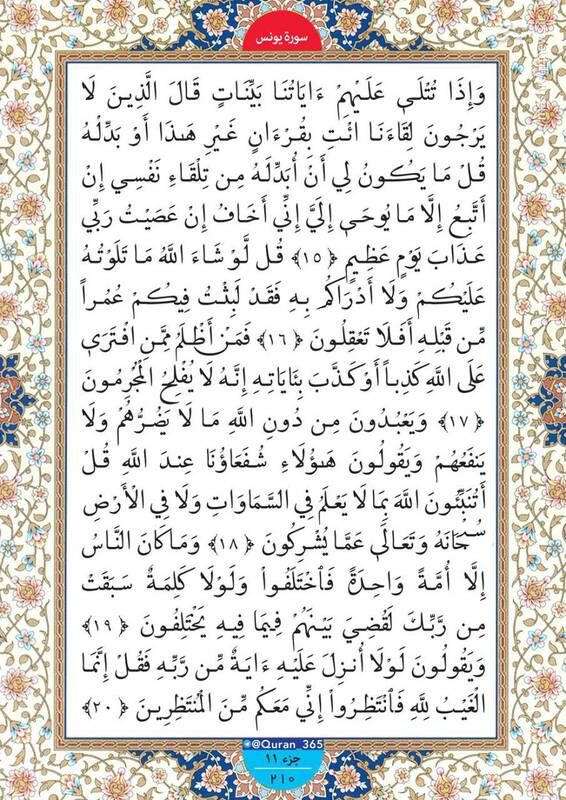 سورة يونس
وَإِذَا تُتْلَىٰ عَلَيْهِمْ ءَايَاتُنَا بَيِّنَاتٍ قَالَ الَّذِينَ لَا
يَرْجُونَ لِقَاءَنَا ائْتِ بِقُرْءَانٍ غَيْرِ هَٰذَا أَوْ بَدِّلْهُ
قُلْ مَا يَكُونُ لِي أَنْ أُبَدِّلَهُ مِن تِلْقَاءِ نَفْسِي إِنْ
أَتَّبِعُ إِلَّا مَا يُوحَىٰ إِلَيَّ إِنِّي أَخَافُ إِنْ عَصَيْتُ رَبِّي
عَذَابَ يَوْمٍ عَظِيمٍ ﴿١٥﴾ قُل لَّوْ شَاءَ اللَّهُ مَا تَلَوْتُهُ
عَلَيْكُمْ وَلَا أَدْرَاكُم بِهِ فَقَدْ لَبِثْتُ فِيكُمْ عُمُراً
مِّن قَبْلِهِ أَفَلَا تَعْقِلُونَ ﴿١٦﴾ فَمَنْ أَظْلَمُ مِمَّنِ افْتَرَىٰ
عَلَى اللَّهِ كَذِباً أَوْ كَذَّبَ بِئَايَاتِهِ إِنَّهُ لَا يُفْلِحُ الْمُجْرِمُونَ
﴿١٧﴾ وَيَعْبُدُونَ مِن دُونِ اللَّهِ مَا لَا يَضُرُّهُمْ وَلَا
يَنفَعُهُمْ وَيَقُولُونَ هَٰؤُلَاءِ شُفَعَاؤُنَا عِندَ اللَّهِ قُلْ
أَتُنَبِّئُونَ اللَّهَ بِمَا لَا يَعْلَمُ فِي السَّمَاوَاتِ وَلَا فِي الْأَرْضِ
سُبْحَانَهُ وَتَعَالَىٰ عَمَّا يُشْرِكُونَ ﴿١٨﴾ وَمَا كَانَ النَّاسُ
إِلَّا أُمَّةً وَاحِدَةً فَاخْتَلَفُوا وَلَوْلَا كَلِمَةٌ سَبَقَتْ
مِن رَّبِّكَ لَقُضِيَ بَيْنَهُمْ فِيمَا فِيهِ يَخْتَلِفُونَ ﴿١٩﴾
وَيَقُولُونَ لَوْلَا أُنزِلَ عَلَيْهِ ءَايَةٌ مِّن رَّبِّهِ فَقُلْ إِنَّمَا
الْغَيْبُ لِلَّهِ فَانْتَظِرُوا إِنِّي مَعَكُم مِّنَ الْمُنْتَظِرِينَ ﴿٢٠﴾
@Quran_365
جزء ١١
٢١٠